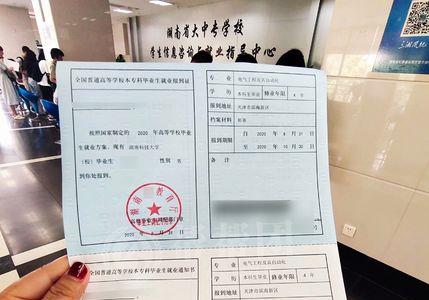 湖南省大中专学校
学生信息咨询与就业指导中心
全国普通高等学校本专科毕业生就业报到证
按照国家制定的 2020 年高等学校毕业
生就业方案,现有 湖南科技大学
(校)毕业生 性别 男
到你处报到。
专业 电气工程及其自动化
学历 本科生毕业 修业年限 4 年
报到地址 天津市滨海新区
档案材料 邮寄
报到期限 自 2020 年 8 月 31 日
至 2020 年 10 月 30 日
备注
全国普通高等学校本专科毕业生就业通知书
专业 电气工程及其自动化
学历 本科生毕业 修业年限 4 年
天津市滨海新区